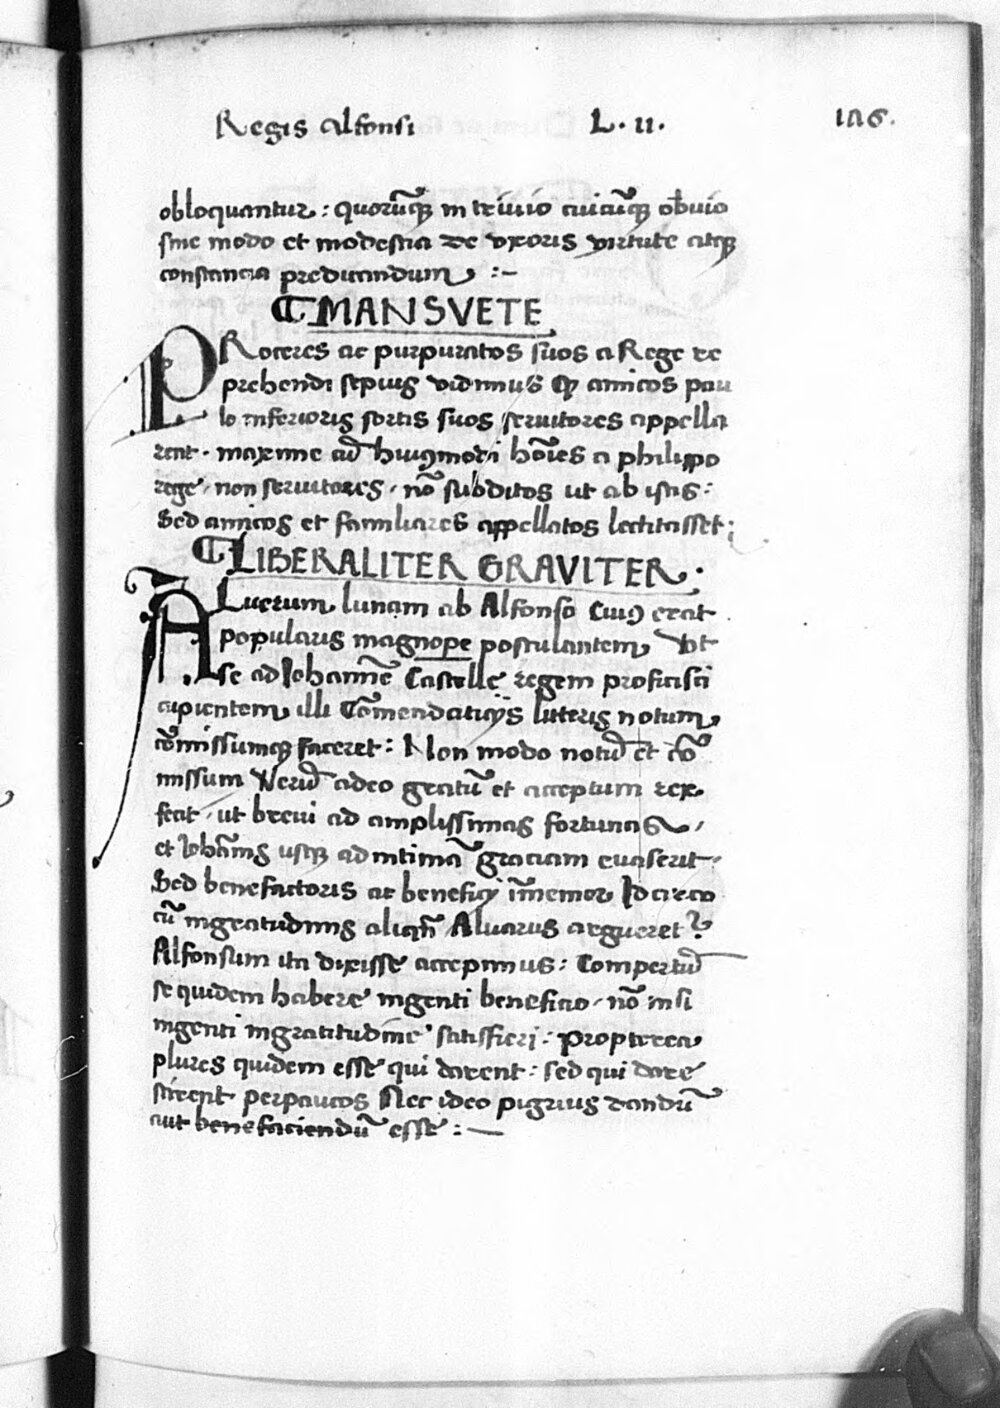 Regis Alfonsi L. II. 1A6.
obloquantur : quorūqꝫ in triuio cuicūqꝫ obuio
sine modo et modestia de vxoris virtute atqꝫ
constancia predicandum :-
MANSVETE
PRoceres ac purpuratos suos a Rege re
prehendi sepius vidimus qꝫ amicos pau
lo inferioris sortis suos seruitores appella
rent. maxime cū huiꝯmodi hoīes a philippo
rege, non seruitores, nō subditos ut ab istis:
Sed amicos et familiares appellatos lectitasset;
LIBERALITER GRAVITER.
ALuerum lunam ab Alfonso Cuiꝯ erat
popularis magnope postulantem Vt
se ad Iohannē Castelle regem proficisci
cupientem illi Cōmendaticijs litteris notum
cōmissumqꝫ faceret : Non modo notū et cō
missum Verū adeo gratū et acceptum rex
fecit, ut breui ad amplissimas fortunas,
et Iohānis usqꝫ ad intimā graciam euaserit.
Sed benefactoris ac beneficij īmemor Idcirco
cū ingratudinis aliqn̄ Aluarus argueret᷑
Alfonsum ita dixisse accepimus : Compertū
se quidem habere ingenti beneficio, nō nisi
ingenti ingratitudine satisfieri : Propterea
plures quidem esse qui darent : sed qui dare
scirent perpaucos Nec ideo pigrius dandū
aut benefaciendū esse : —